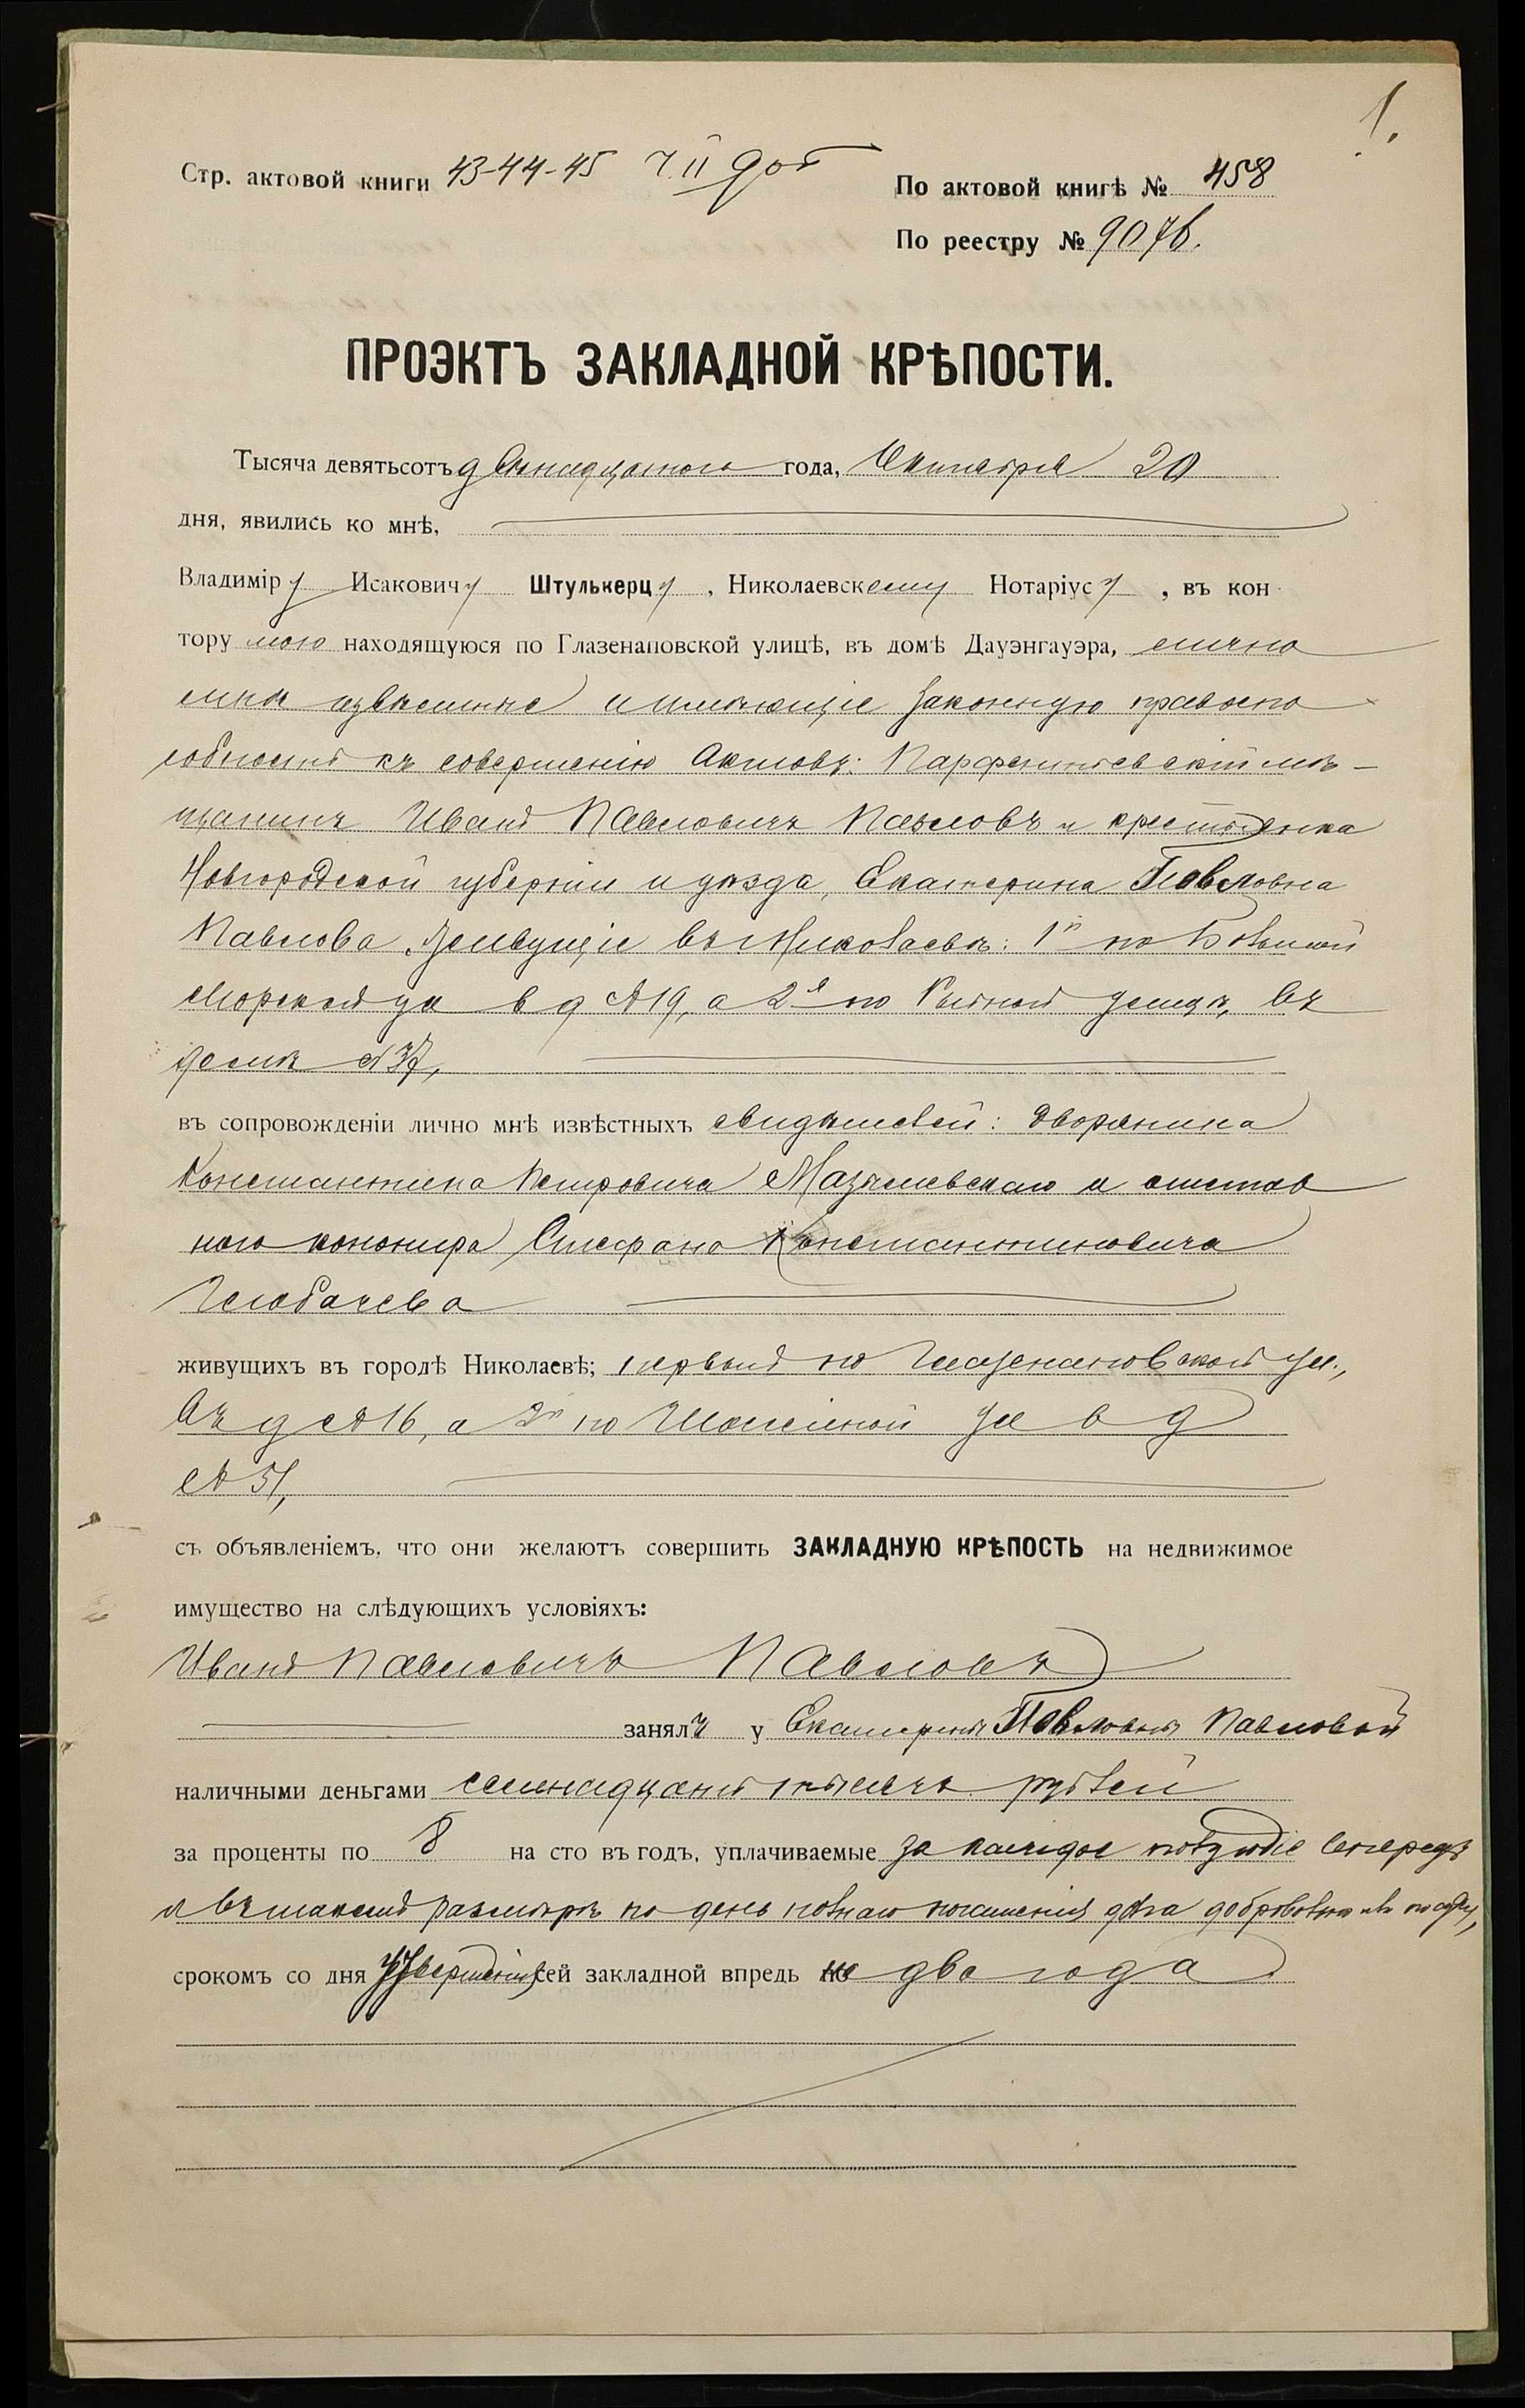 1.
Стр. актовой книги 43-44-45 Ч. II доб
По актовой книгѣ № 458
По реестру № 9076.
ПРОЭКТЪ ЗАКЛАДНОЙ КРѢПОСТИ.
Тысяча девятьсотъ двѣнадцатого года, Октября 20
дня, явились ко мнѣ,
Владиміру Исаковичу Штулькерцу, Николаевскому Нотаріусу, въ кон
тору мою находящуюся по Глазенаповской улицѣ, въ домѣ Дауэнгауэра, лично
мнѣ извѣстные и имѣющіе законную правоспо
собность къ совершенію актовъ: Парфентьевскій мѣ-
щанинъ Иванъ Павловичъ Павловъ и крестьянка
Новгородской губерніи и уѣзда, Екатерина Павловна
Павлова, живущіе въ г. Николаевѣ: 1й по Большой
Морской ул в д №19, а 2я по Рыбной улицѣ, въ
домѣ №37,
въ сопровожденіи лично мнѣ извѣстныхъ свидѣтелей: дворянина
Константина Петровича Мазылевскаго и отстав
ного канонира Стефана Константиновича
живущихъ въ городѣ Николаевѣ; первый по Глазенаповской ул.,
въ д №16, а 2й по ул в д
№ 51,
съ объявленіемъ, что они желаютъ совершить ЗАКЛАДНУЮ КРѢПОСТЬ на недвижимое
имущество на слѣдующихъ условіяхъ:
Иванъ Павловичъ Павловъ
занялъ у Екатерины Павловны Павловой
наличными деньгами семнадцать тысячъ рублей
за проценты по 8 на сто въ годъ, уплачиваемые за каждое полугодіе впередъ
и въ такомъ размѣрѣ по день полнаго погашенія долга добровольно или по суду,
срокомъ со дня утвержденія сей закладной впредь на два года